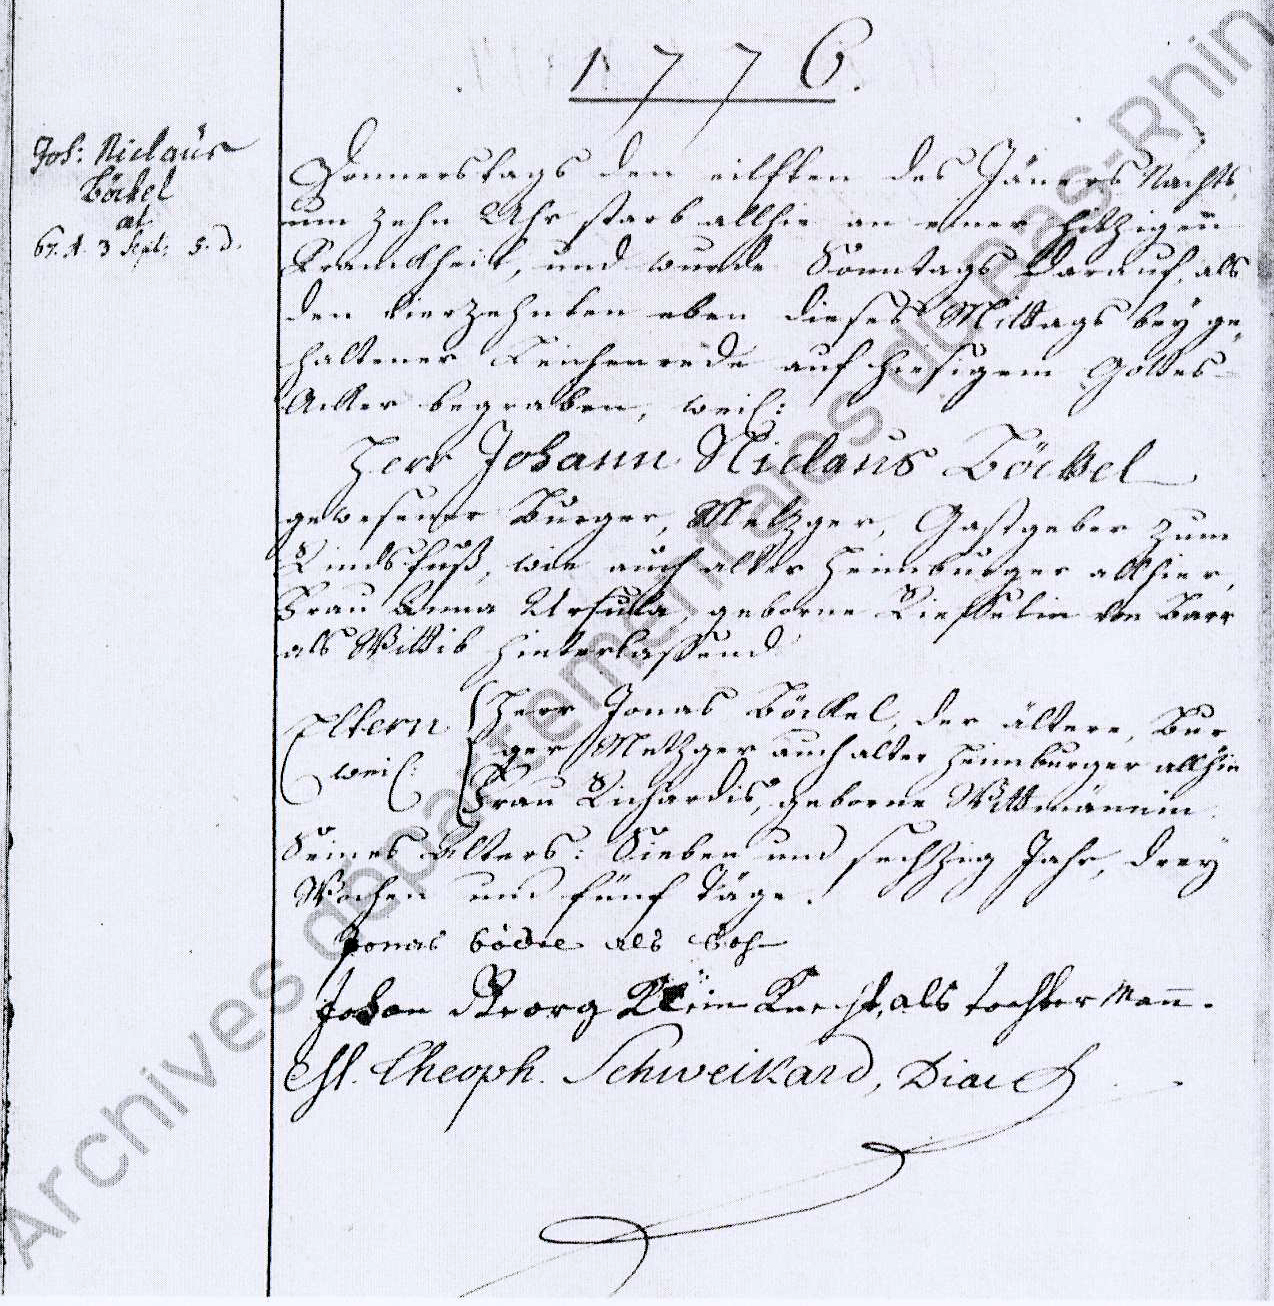 1776.
Joh: Niclaus
Böckel
æt.
67. A. 3 Sept: 5. d.
Donnerstags den eilften des Jäners Nachts
um zehn Uhr starb allhie an einer hitzigen
Kranckheit, und wurde Sonntags darauf, als
den vierzehnten eben dieses Mittags bey ge„
haltener Leichenrede auf hiesigem Gottes-
Acker begraben, weil:
Herr Johann Niclaus Böckel
gewesener Burger, Metzger, Gastgeber zum
Rindsfuß, wie auch alter Heimburger allhier,
Frau Anna Ursula, geborne von Barr
als Wittib hinterlassend
Eltern
weil:
Herr Jonas Böckel, der ältere, Bur
ger Metzger auch alter Heimburger allhie
Frau Richardis, geborne Wittmännin.
Seines Alters: Sieben und sechzig Jahr, drey
Wochen und fünf Täge.
Jonas böckel als Sohn
Johan Georg Klein Knecht, als tochter Mann.
M. Theoph. Schweikard, Diac
Archives départementales du Bas-Rhin